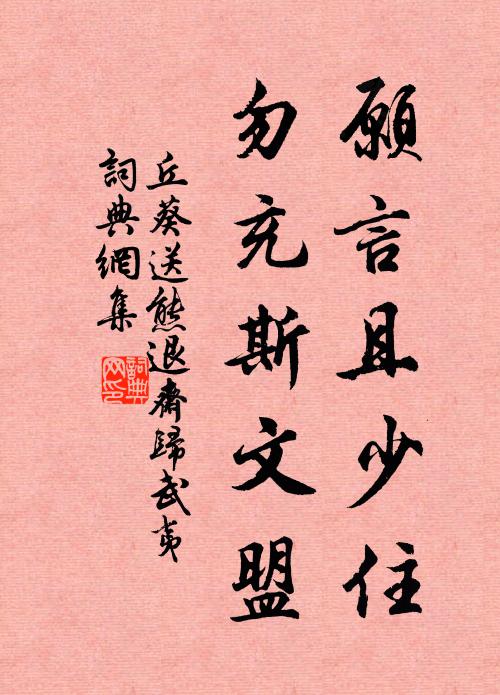 願言且少住
勿充斯文盟
丘葵送熊退齋歸武夷
詞典網集
詞典網印